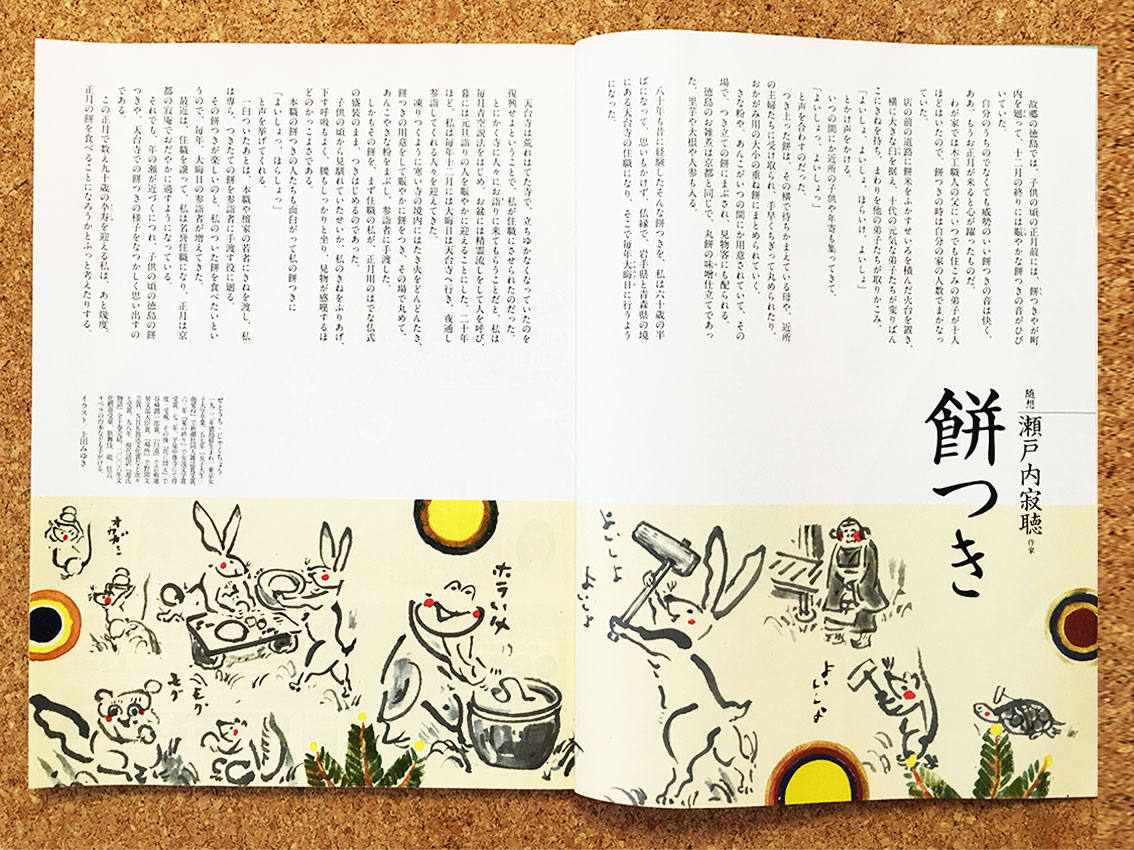 随想
瀬戸内寂聴 作家
餅つき
故郷の徳島では、子供の頃の正月前には、餅つきやが町
内を廻って、十二月の終りには賑やかな餅つきの音がひび
いていた。
自分のうちのでなくても威勢のいい餅つきの音は快く、
ああ、もうお正月が来ると心が躍ったものだ。
わが家では木工職人の父にいつでも住こみの弟子が十人
ほどはいたので、餅つきの時は自分の家の人数でまかなっ
ていた。
店の前の道路に餅米をふかすせいろを積んだ火台を置き、
横に大きな臼を据え、十代の元気な弟子たちが変りばん
こにきねを持ち、まわりを他の弟子たちが取りかこみ、
「よいしょ、よいしょ、ほらいけ、よいしょ」
とかけ声をかける。
いつの間にか近所の子供や年寄も集ってきて、
「よいしょっ、よいしょっ」
と声を合わすのだった。
つき上った餅は、その横で待ちかまえている母や、近所
の主婦たちに受け取られ、手早くちぎって丸められたり、
おかがみ用の大小の重ね餅にまとめられていく。
きな粉や、あんこがいつの間にか用意されていて、その
場で、つき立ての餅にまぶされ、見物客にも配られる。
徳島のお雑煮は京都と同じで、丸餅の味噌仕立てであっ
た。里芋や大根や人参も入る。
八十年も昔に経験したそんな餅つきを、私は六十歳の半
ばになって、思いもかけず、仏縁で、岩手県と青森県の境
にある天台寺の住職になり、そこで毎年大晦日に行うよう
になった。
天台寺は荒れはてたな寺で、立ちゆかなくなっていたのを
復興せよということで、私が住職にさせられたのだった。
とにかく寺に人々にお詣りに来てもらうことだと、私は
毎月青空説法をはじめ、お盆には精霊流しをして人を呼び、
暮には元旦詣りの人を賑やかに迎えることにした。二十年
ほど、私は毎年十二月には大晦日は天台寺へ行き、夜通し
参詣してくれる人々を迎えてきた。
凍りつくように寒い寺の境内にはたき火をどんどんたき、
餅つきの用意をして賑やかに餅をつき、その場で丸めて、
あんこやきな粉をまぶし、参詣者に手渡した。
しかもその餅を、まず住職の私が、正月用のはでな仏式
の盛装のまま、つきはじめるのであった。
子供の頃から見馴れていたせいか、私のきねをふりあげ、
下す呼吸もよく、腰もしっかりと坐り、見物が感嘆するほ
どのかっこよさである。
本職の餅つきの人たちも面白がって私の餅つきに
「よいしょっ、ほらしょっ」
と声を挙げてくれる。
一臼ついたあとは、本職や檀家の若者にきねを渡し、私
は専ら、つきたての餅を参詣者に手渡す役に廻る。
その餅つきが楽しいのと、私のついた餅を食べたいとい
うので、毎年、大晦日の参詣者が増えてきた。
最近は、住職を譲って、私は名誉住職になり、正月は京
都の寂庵でおだやかに過すようになっている。
それでも、年の瀬が近づくにつれ、子供の頃の徳島の餅
つきや、天台寺での餅つきの様子をなつかしく思い出すの
である。
この正月で数え九十歳の卒寿を迎える私は、あと幾度、
正月の餅を食べることになろうかとふっと考えたりする。
せとうち・じゃくちょう
イラスト／上田みゆき
よいしょ
よいしょ
よいしょ
ホラいけ
モグ
モグ